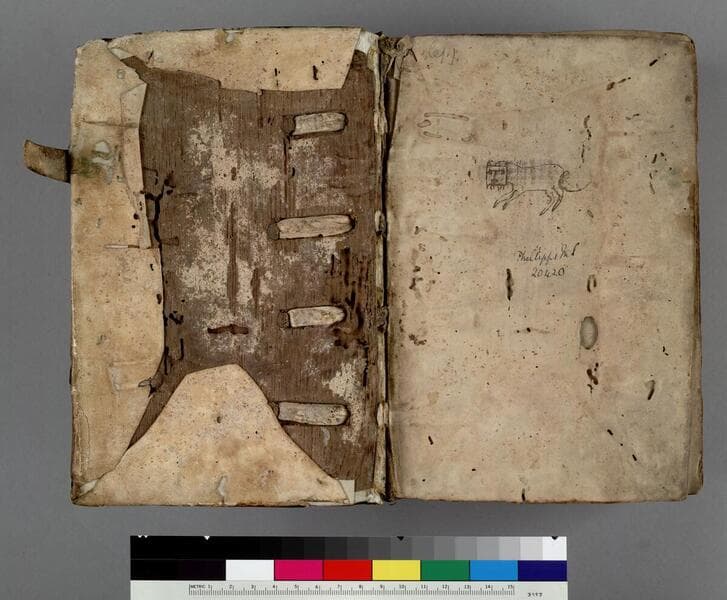 Phillipps MS
20420
METRIC 1 2 3 4 5 6 7 8 9 10 11 12 13 14 15